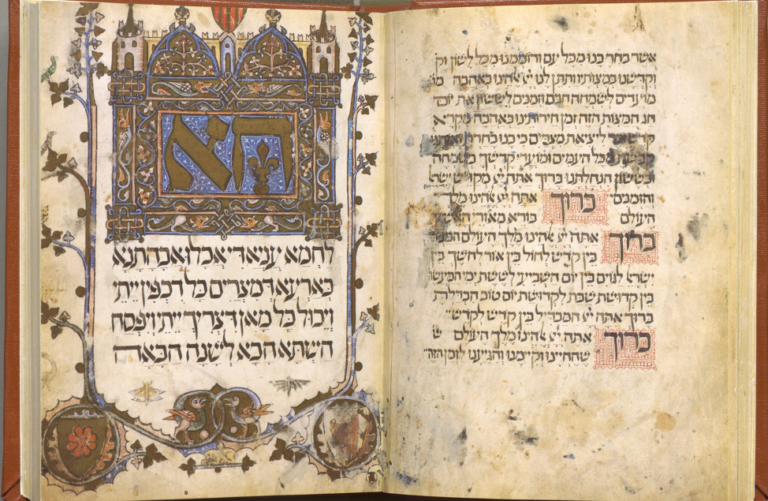 אשר בחר בנו מכל עם ורוממנו מכל לשון וק
וקדשנו במצותיו ותתן לנו ייי אלהינו באהבה מו
מועדים לשמחה חגים וזמנים לששון את יום
חג המצות הזה זמן חירותינו באהבה מקרא
קדש זכר ליציאת מצרים כי בנו בחרת ואותנו
קדשת מכל העמים ומועדי קדשך בשמחה
ובששון הנחלתנו ברוך אתה ייי מקדש ישרא
והזמנים ברוך אתה ייי אלהינו מלך
העולם בורא מאורי האש
ברוך אתה ייי אלהינו מלך העולם
בין קדש לחול בין אור לחשך בין
ישראל לגוים בין יום השביעי לששת ימי המעשה
בין קדושת שבת לקדושת יום טוב הבדלת
ברוך אתה ייי המבדיל בין קדש לקדש
ברוך אתה ייי אלהינו מלך העולם ש
שהחיינו וקיימנו והגיענו לזמן הזה
הא
לחמא עניא די אכלו אבהתנא
בארעא דמצרים כל דכפין ייתי
ויכול כל מאן דצריך ייתי ויפסח
השתא הכא לשנה הבאה